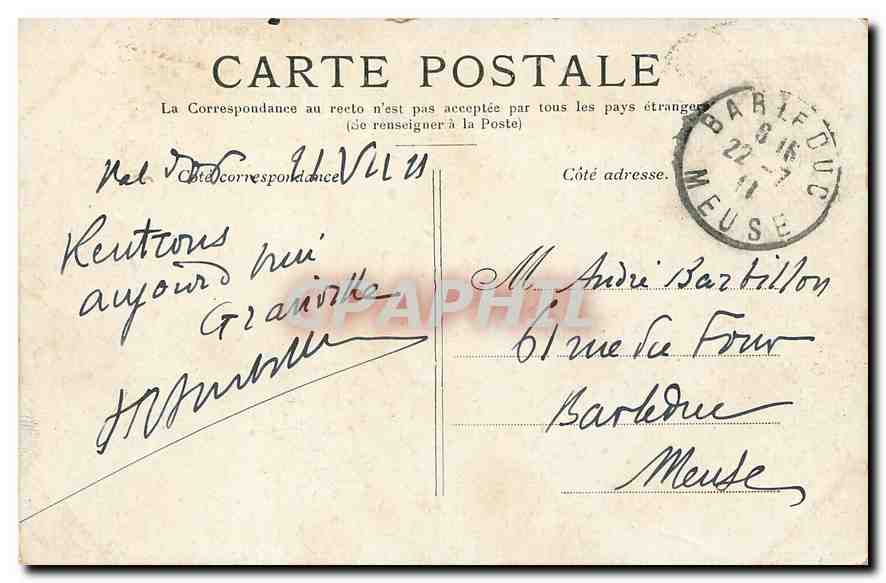 CARTE POSTALE
La Correspondance au recto n'est pas acceptée par tous les pays étrangers
(Se renseigner à la Poste)
Côté correspondance
VII 11
Rentrons
aujourd'hui
Granville
Côté adresse.
BAR LE DUC
22-7
11
MEUSE
M. André Barbillon
61 rue du Four
Barleduc
Meuse
CPAPHIL